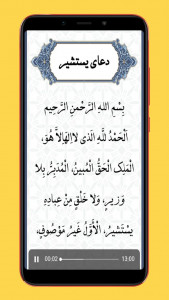 دعای یستشیر
بِسْمِ اللهِ الرَّحْمنِ الرَّحِیمِ
اَلْحَمْدُ لِلّهِ الَّذی لا اِلهَ اِلاَّ هُوَ
الْمَلِکُ الْحَقُّ الْمُبینُ، الْمُدَبِّرُ بِلا
وَزیرٍ، وَلا خَلْقٍ مِنْ عِبادِهِ
یَسْتَشیرُ، الْأَوَّلُ غَیْرُ مَوْصُوفٍ،
00:02 13:00